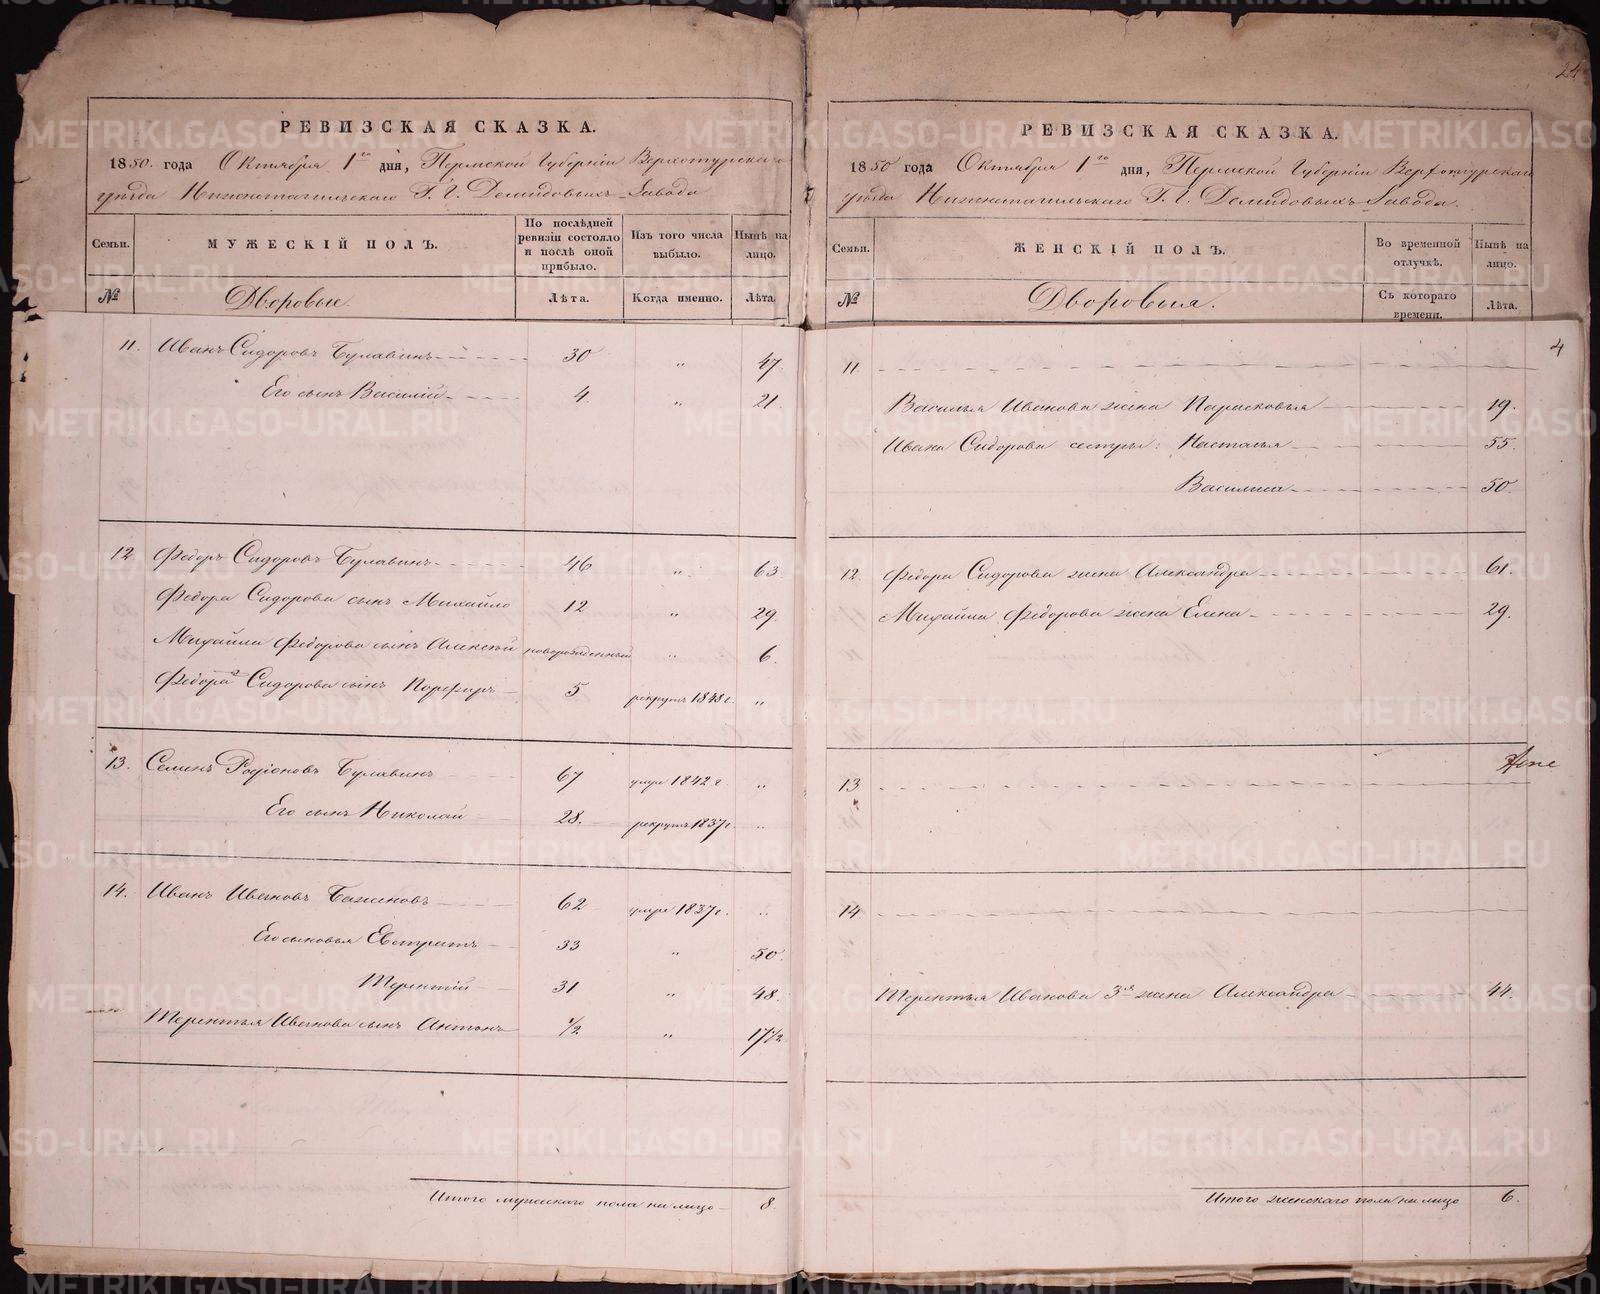 24
РЕВИЗСКАЯ СКАЗКА.
1850. года Октября 1го дня, Пермской Губерніи Верхотурскаго
уѣзда Нижнетагильскаго Г. Г. Демидовыхъ Завода
Семьи. МУЖЕСКІЙ ПОЛЪ. По послѣдней ревизіи состояло и послѣ оной прибыло. Изъ того числа выбыло. Нынѣ на лицо.
№ Дворовые. Лѣта. Когда именно. Лѣта.
11. Иванъ Сидоровъ Булавинъ 30 „ 47.
Его сынъ Василій 4. „ 21.
12. Федоръ Сидоровъ Булавинъ 46 „ 63.
Федора Сидорова сынъ Михайло 12 „ 29.
Михайла Федорова сынъ Алексѣй новорожденный „ 6.
Федора Сидорова сынъ Порфиръ 5 рекрутъ 1848 г. „
13. Семенъ Родіоновъ Булавинъ 67 умре 1842 г. „
Его сынъ Николай 28. рекрутъ 1837 г. „
14. Иванъ Ивановъ Баженовъ 62 умре 1837 г. „
Его сыновья Евстратъ 33 „ 50.
Терентій 31 „ 48.
Терентья Иванова сынъ Антонъ ½ „ 17½
Итого мужескаго пола на лицо 8.
РЕВИЗСКАЯ СКАЗКА.
1850 года Октября 1го дня, Пермской Губерніи Верхотурскаго
уѣзда Нижнетагильскаго Г. Г. Демидовыхъ Завода.
Семьи. ЖЕНСКІЙ ПОЛЪ. Во временной отлучкѣ. Нынѣ на лицо.
№ Дворовыя. Съ котораго времени. Лѣта.
4
11.
Василья Иванова жена Парасковья 19.
Ивана Сидорова сестры: Настасья 55.
Василиса 50.
12. Федора Сидорова жена Александра 61.
Михайла Федорова жена Елена 29.
13
14
Терентья Иванова 3я жена Александра 44.
Итого женскаго пола на лицо 6.
METRIKI.GASO-URAL.RU